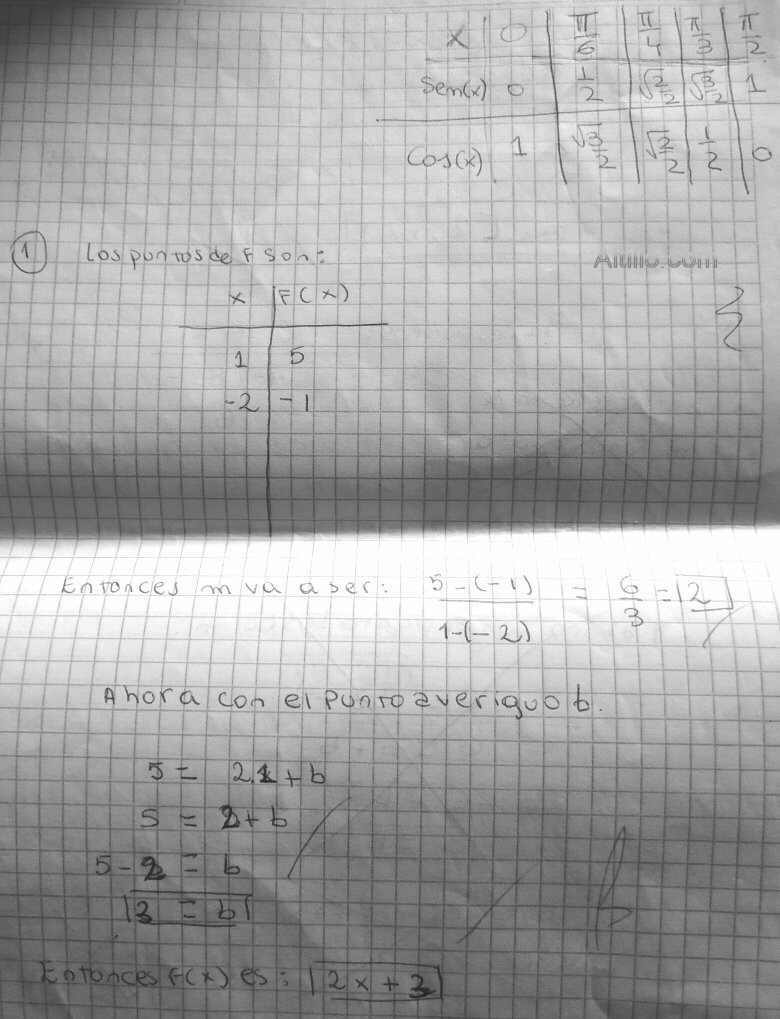 x | 0 | π/6 | π/4 | π/3 | π/2
Sen(x) | 0 | 1/2 | √2/2 | √3/2 | 1
Cos(x) | 1 | √3/2 | √2/2 | 1/2 | 0
① Los puntos de F son:
Altillo.com
x | F(x)
1 | 5
-2 | -1
Entonces m va a ser: 5-(-1)/1-(-2) = 6/3 = 2
Ahora con el punto averiguo b.
5 = 2.1 + b
5 = 2 + b
5 - 2 = b
3 = b
Entonces F(x) es: 2x + 3